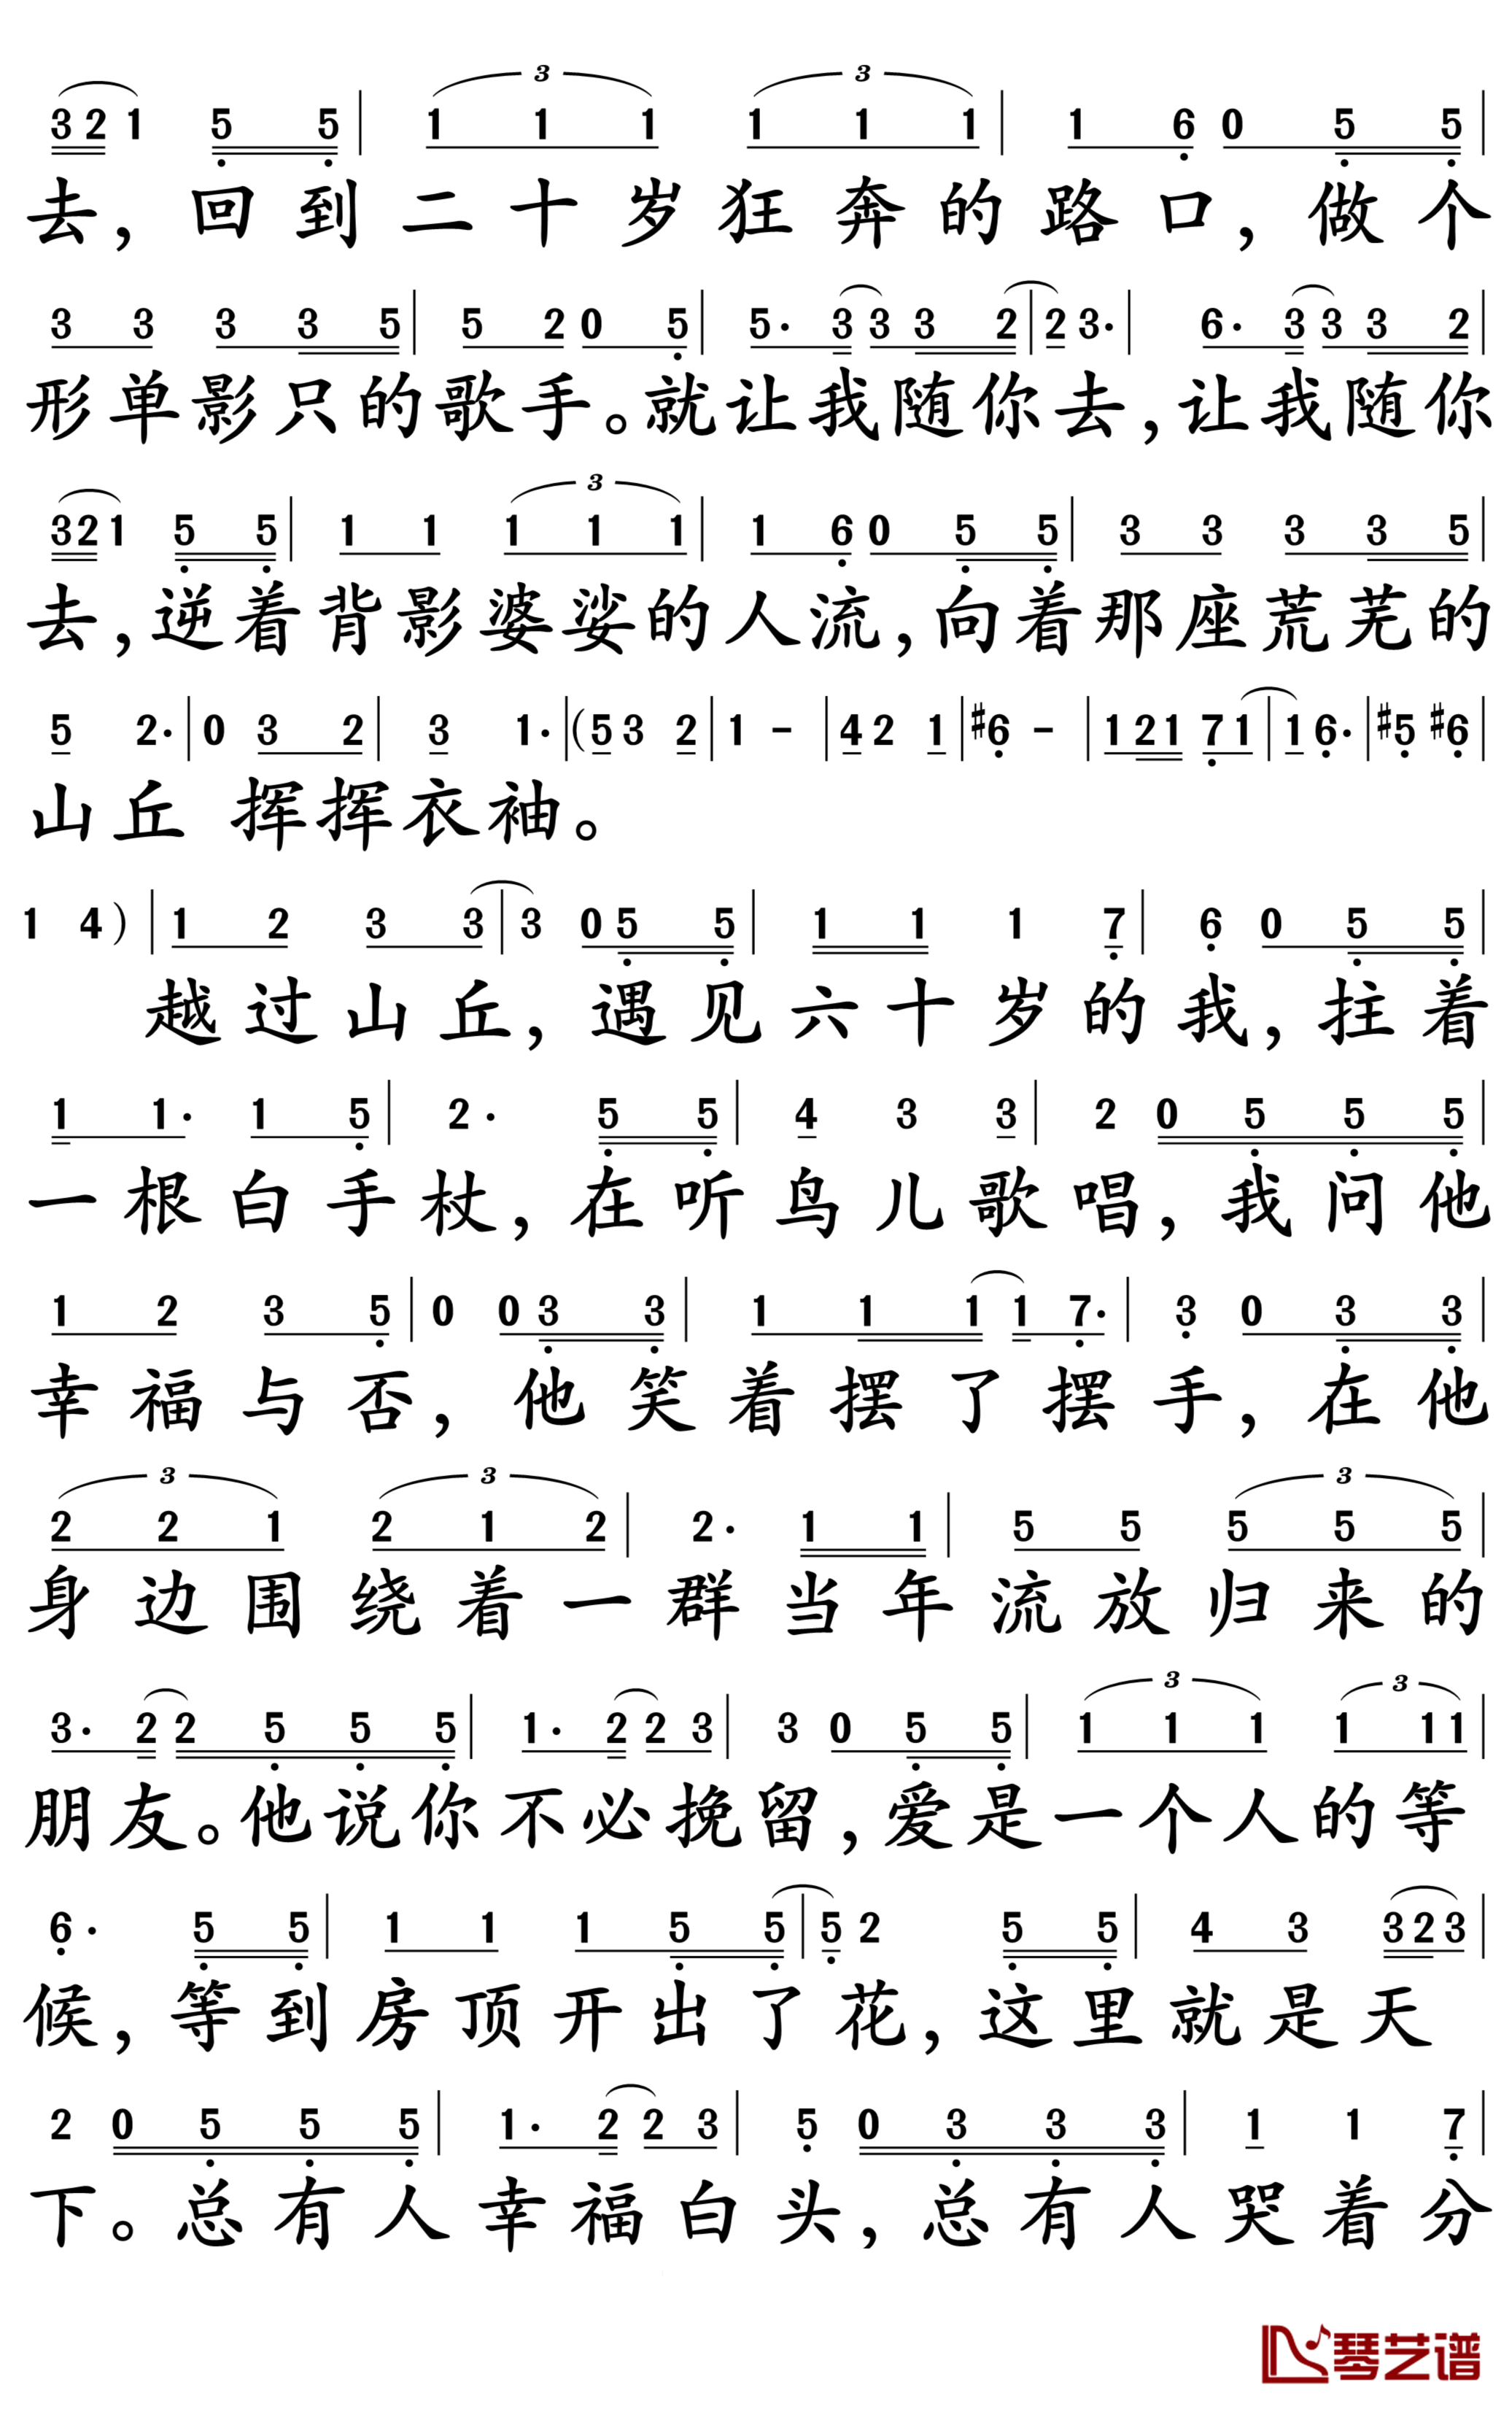 3
3
3 2 1 5 5 | 1 1 1 1 1 1 | 1 6 0 5 5 |
去，回到二十岁狂奔的路口，做个
3 3 3 3 5 | 5 2 0 5 | 5· 3 3 3 2 | 2 3· | 6· 3 3 3 2 |
形单影只的歌手。就让我随你去，让我随你
3
3 2 1 5 5 | 1 1 1 1 1 | 1 6 0 5 5 | 3 3 3 3 5 |
去，逆着背影婆娑的人流，向着那座荒芜的
5 2· | 0 3 2 | 3 1· | (5 3 2 | 1 - | 4 2 1 | #6 - | 1 2 1 7 1 | 1 6· | #5 #6 |
山丘 挥挥衣袖。
1 4) | 1 2 3 3 | 3 0 5 5 | 1 1 1 7 | 6 0 5 5 |
越过山丘，遇见六十岁的我，拄着
1 1· 1 5 | 2· 5 5 | 4 3 3 | 2 0 5 5 5 |
一根白手杖，在听鸟儿歌唱，我问他
1 2 3 5 | 0 0 3 3 | 1 1 1 1 7· | 3 0 3 3 |
幸福与否，他笑着摆了摆手，在他
3 3 3
2 2 1 2 1 2 | 2· 1 1 | 5 5 5 5 5 |
身边围绕着一群当年流放归来的
3 3
3· 2 2 5 5 5 | 1· 2 2 3 | 3 0 5 5 | 1 1 1 1 1 1 |
朋友。他说你不必挽留，爱是一个人的等
6· 5 5 | 1 1 1 5 5 | 5 2 5 5 | 4 3 3 2 3 |
候，等到房顶开出了花，这里就是天
2 0 5 5 5 | 1· 2 2 3 | 5 0 3 3 3 | 1 1 7 |
下。总有人幸福白头，总有人哭着分
琴艺谱